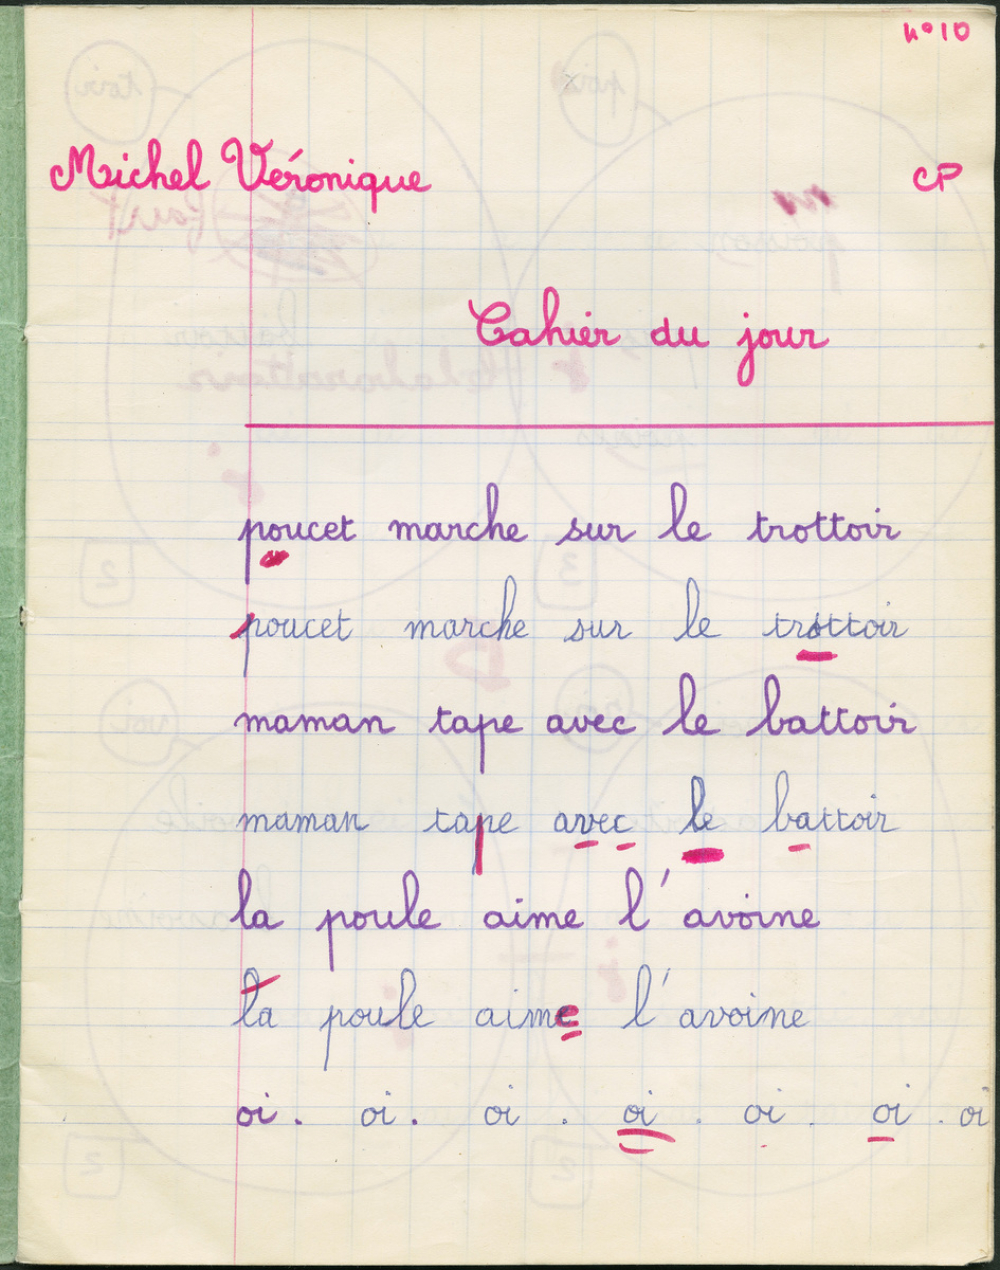 n° 10
Michel Véronique CP
Cahier du jour
poucet marche sur le trottoir
poucet marche sur le trottoir
maman tape avec le battoir
maman tape avec le battoir
la poule aime l'avoine
la poule aime l'avoine
oi. oi. oi. oi. oi. oi. oi